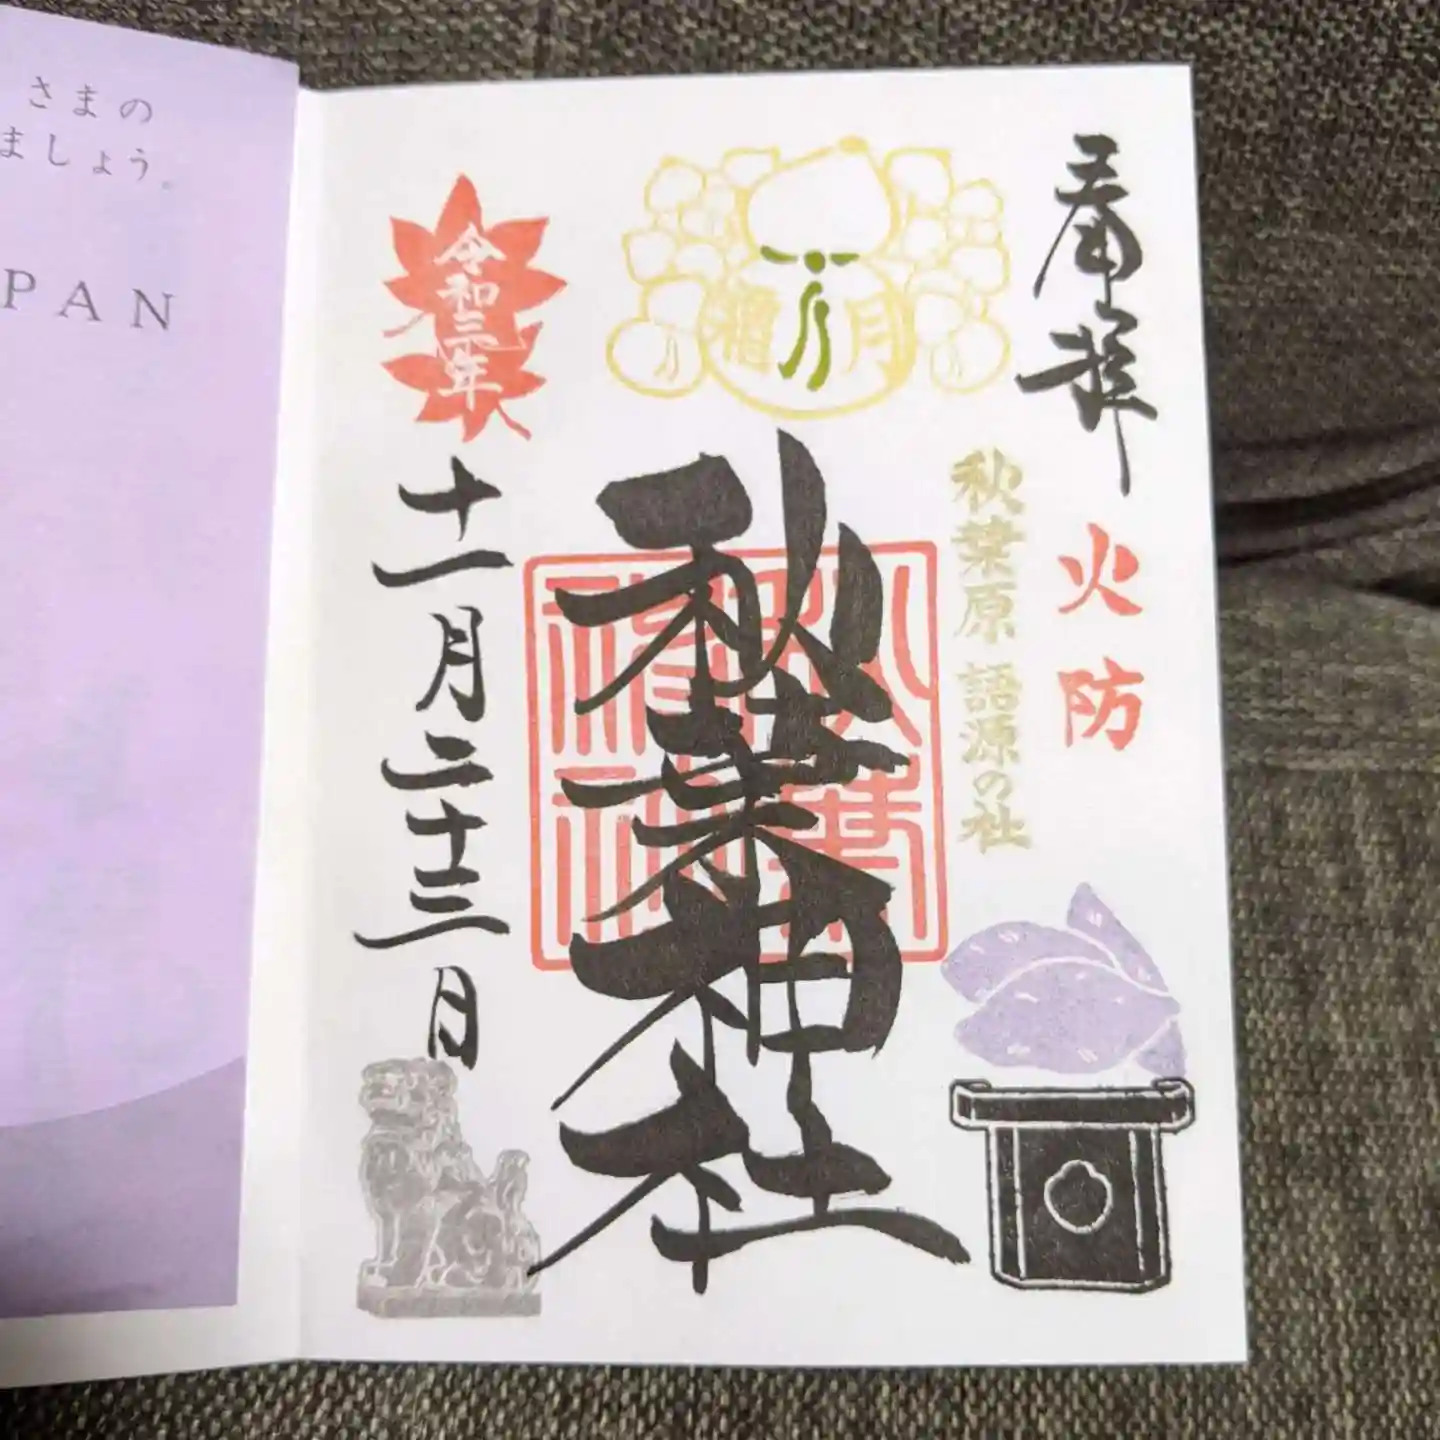 さまの
ましょう。
PAN
奉拝
火防
秋葉原 語源の社
霜月
秋葉神社
令和三年
十一月二十三日